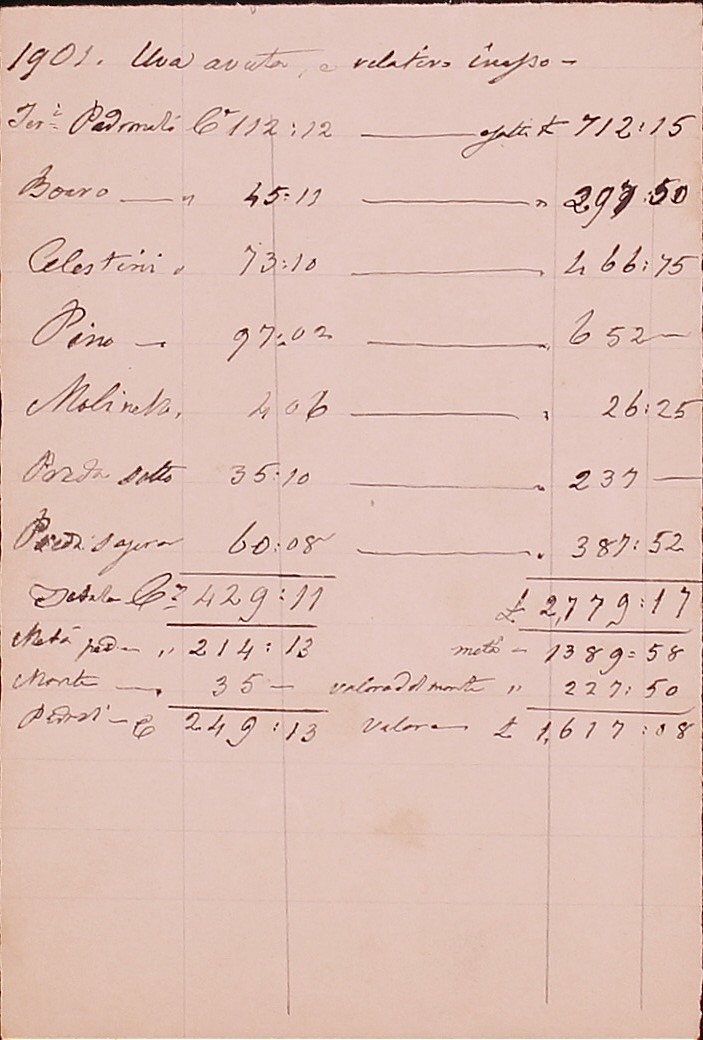 1901. Uva avuta, e relativo incasso -
Ter.i Padronali C.i 112:12 — £ 712:15
Boaro — " 45:11 — " 297:50
Celestini " 73:10 — " 466:75
Pino — 97:02 — " 652 —
Molinetto, 4 06 — " 26:25
Preda sotto 35:10 — " 237 —
Preda sopra 60:08 — " 387:52
Totale C.i 429:11 £ 2,779:17
Metà pad— " 214:13 metà — 1389=58
Monte — " 35 — valore del monte " 227:50
C 249:13 Valore — £ 1,617:08